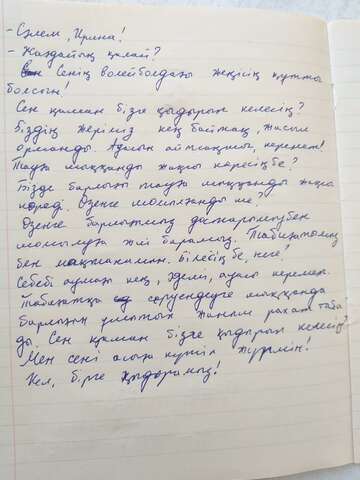 - Сәлем, Ирина!
- Жағдайың қалай?
Сенің волейболдағы жеңісің құтты
болсын!
Сен қашан бізге қыдырып келесің?
Біздің жеріміз кең байтақ, жасыл
орманды. Ауасын айтсаңшы, керемет!
Тауға шыққанды жақсы көресің бе?
Бізде барлығы тауға шыққанды жақсы
көреді. Өзенге шомылғанды ше?
Өзенге барлығымыз достарымызбен
шомылуға жиі барамыз. Табиғатымыз
бен мақтанамын. Білесің бе, неге?
Себебі аумағы кең, әдемі, ауасы керемет.
Табиғатқа серуендеуге шыққанда
барлығын ұмытып жаның рахат таба
ды. Сен қашан бізге қыдырып келесің?
Мен сені асыға күтіп жүрмін!
Кел, бірге қыдырамыз!